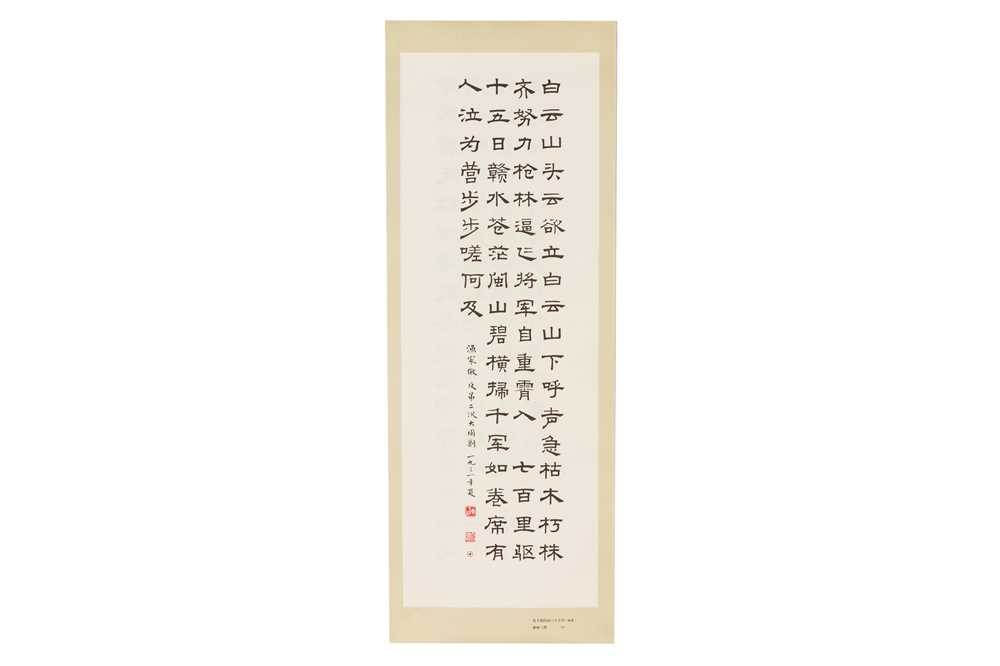 白云山头云欲立白云山下呼声急枯木朽株
齐努力枪林逼飞将军自重霄入 七百里驱
十五日赣水苍茫闽山碧横掃千军如卷席有
人泣为营步步嗟何及
渔家傲 反第二次大围剿 一九三一年夏